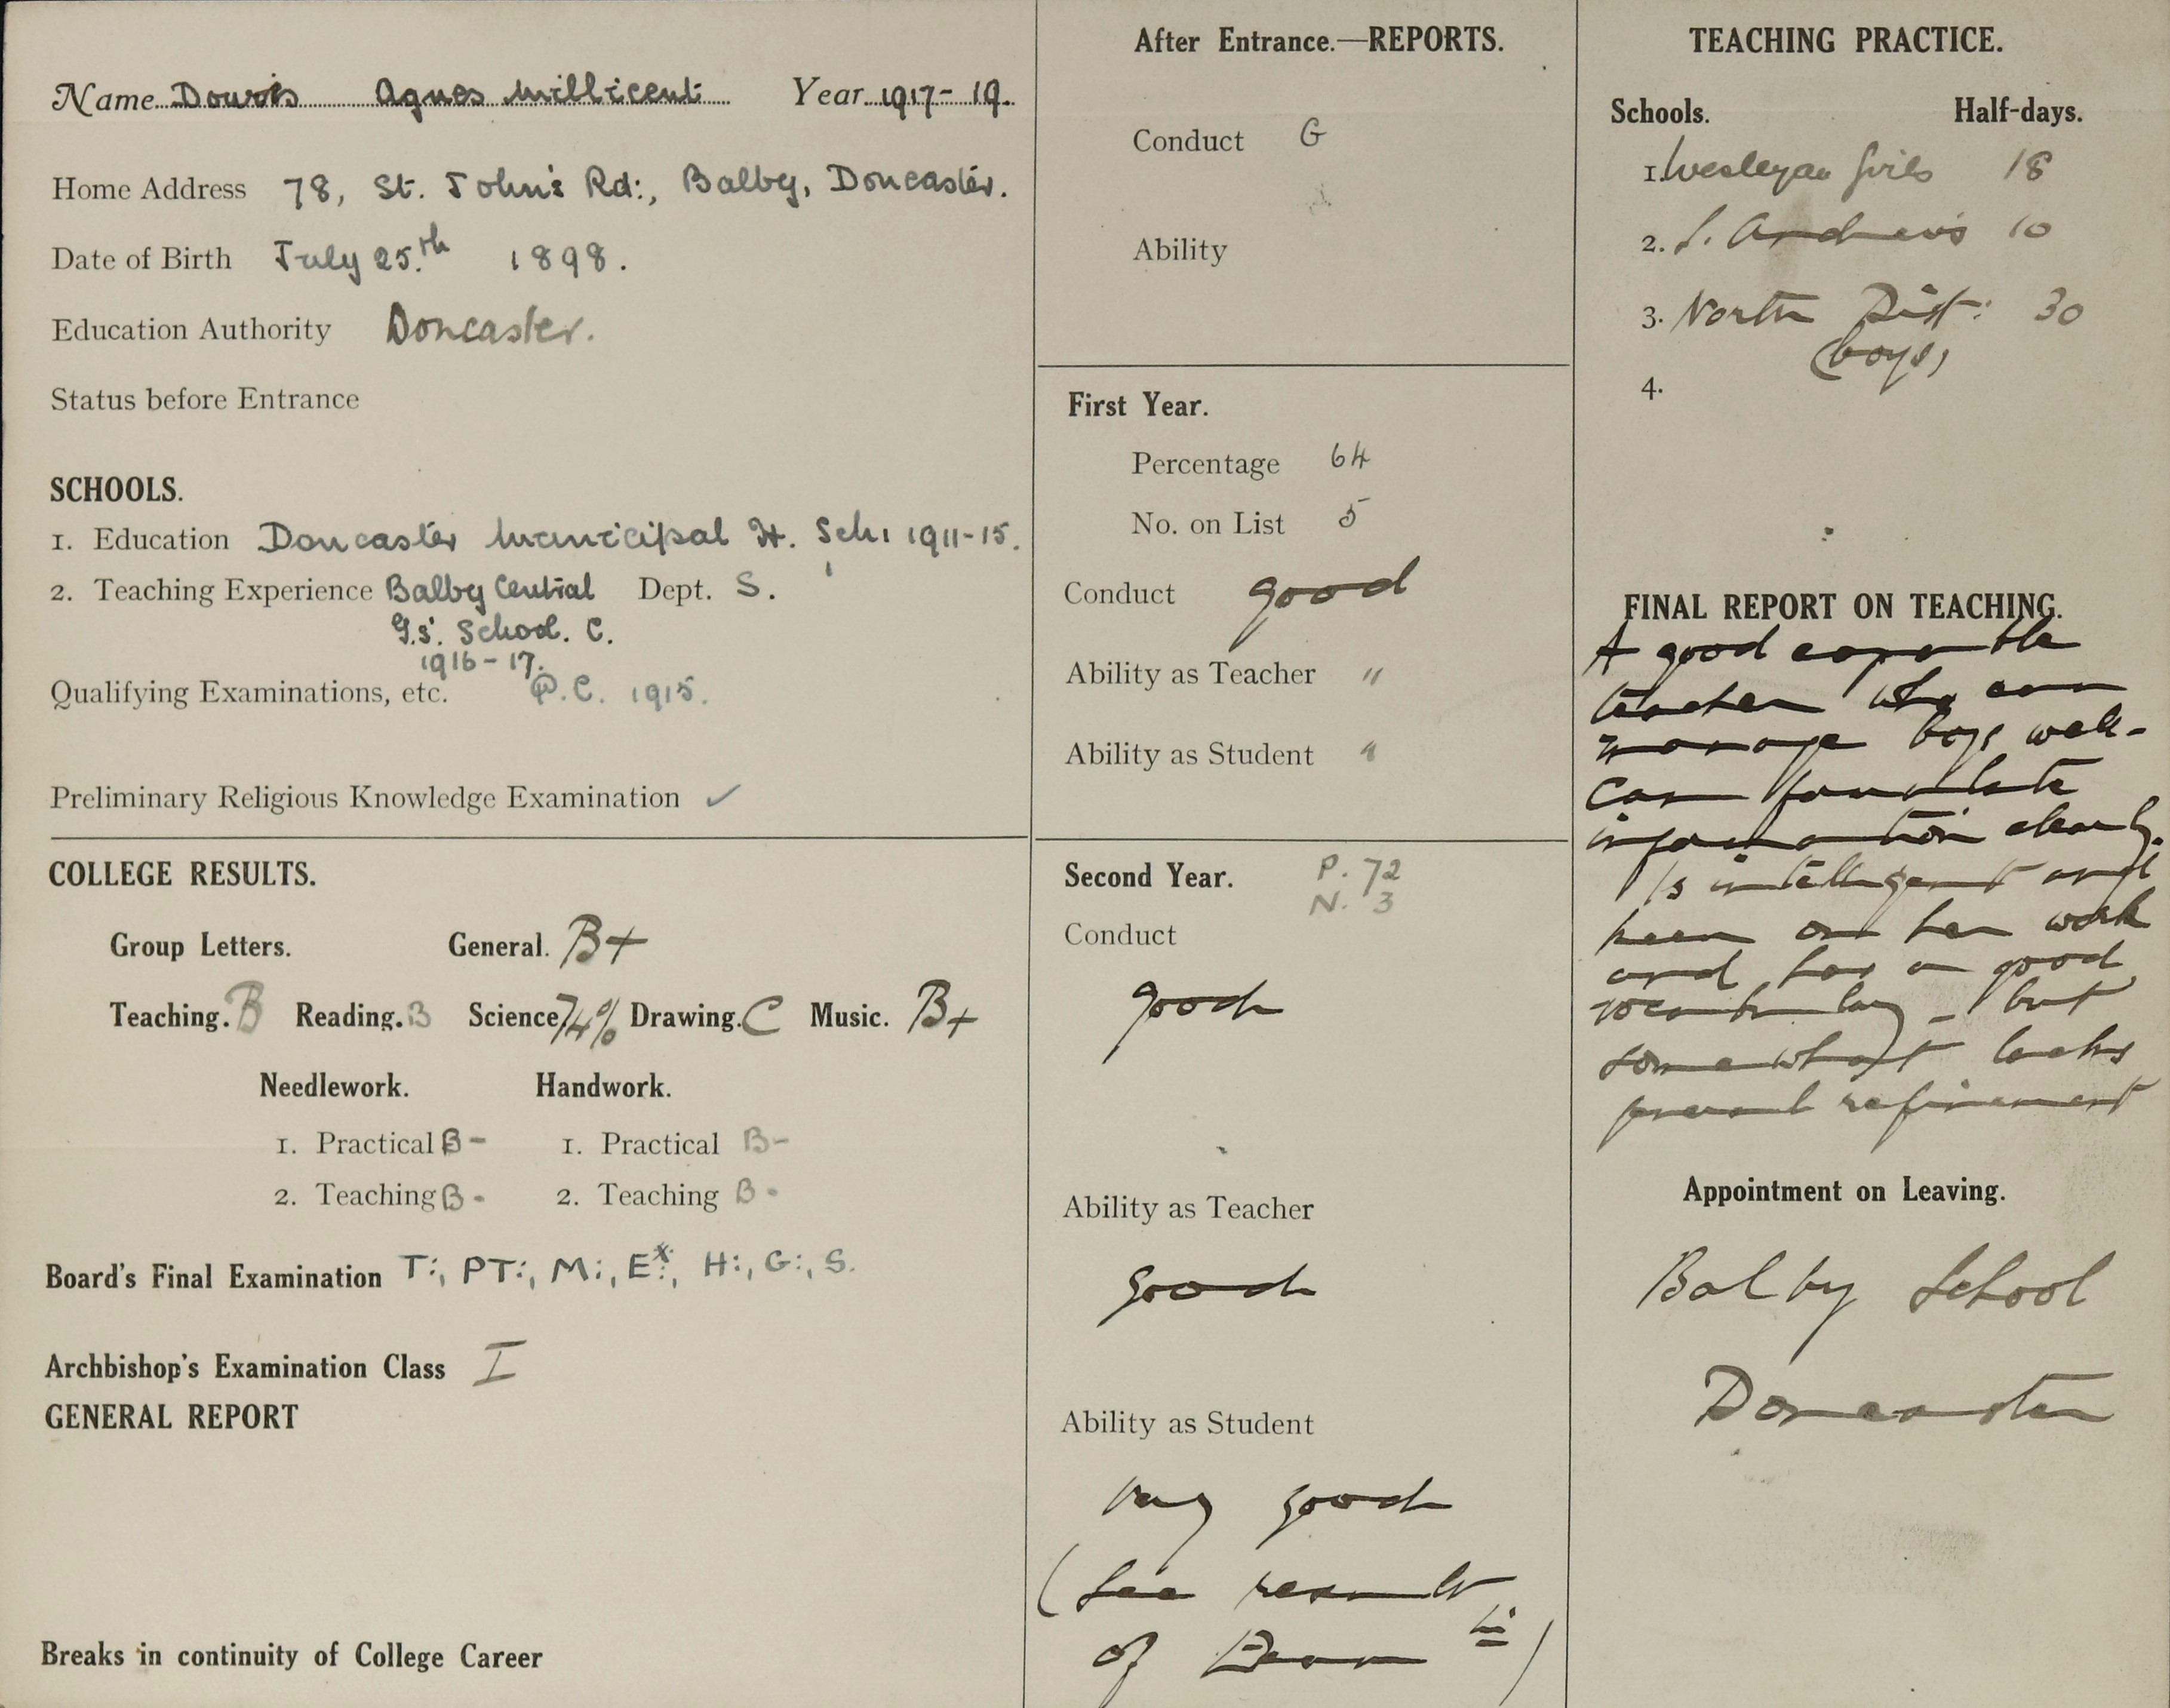 Name Agnes Millicent Year 1917-19.
Home Address 78, St. John's Rd:, Balby, Doncaster.
Date of Birth July 25.th 1898.
Education Authority Doncaster.
Status before Entrance
SCHOOLS.
1. Education Doncaster Municipal H. Sch: 1911-15.
2. Teaching Experience Balby Central Dept. S.
G.s'. School. C.
1916-17.
Qualifying Examinations, etc. P.C. 1915.
Preliminary Religious Knowledge Examination ✓
COLLEGE RESULTS.
Group Letters. General. B+
Teaching. B Reading. B Science 74% Drawing. C Music. B+
Needlework. Handwork.
1. Practical B- 1. Practical B-
2. Teaching B- 2. Teaching B-
Board's Final Examination T:, PT:, M:, Ex:, H:, G:, S.
Archbishop's Examination Class I
GENERAL REPORT
Breaks in continuity of College Career
After Entrance.—REPORTS.
Conduct G
Ability
First Year.
Percentage 64
No. on List 5
Conduct good
Ability as Teacher "
Ability as Student "
Second Year. P. 72
N. 3
Conduct
good
Ability as Teacher
good
Ability as Student
very good
(see result
of Exam)
TEACHING PRACTICE.
Schools. Half-days.
1. Wesleyan Girls 18
2. S. Andrew's 10
3. North Dist: 30
(boys)
4.
FINAL REPORT ON TEACHING.
A good capable
teacher who can
manage boys well-
Can formulate
information clearly.
Is intelligent and
keen on her work
and has a good
vocabulary - but
somewhat lacks
personal refinement
Appointment on Leaving.
Balby School
Doncaster